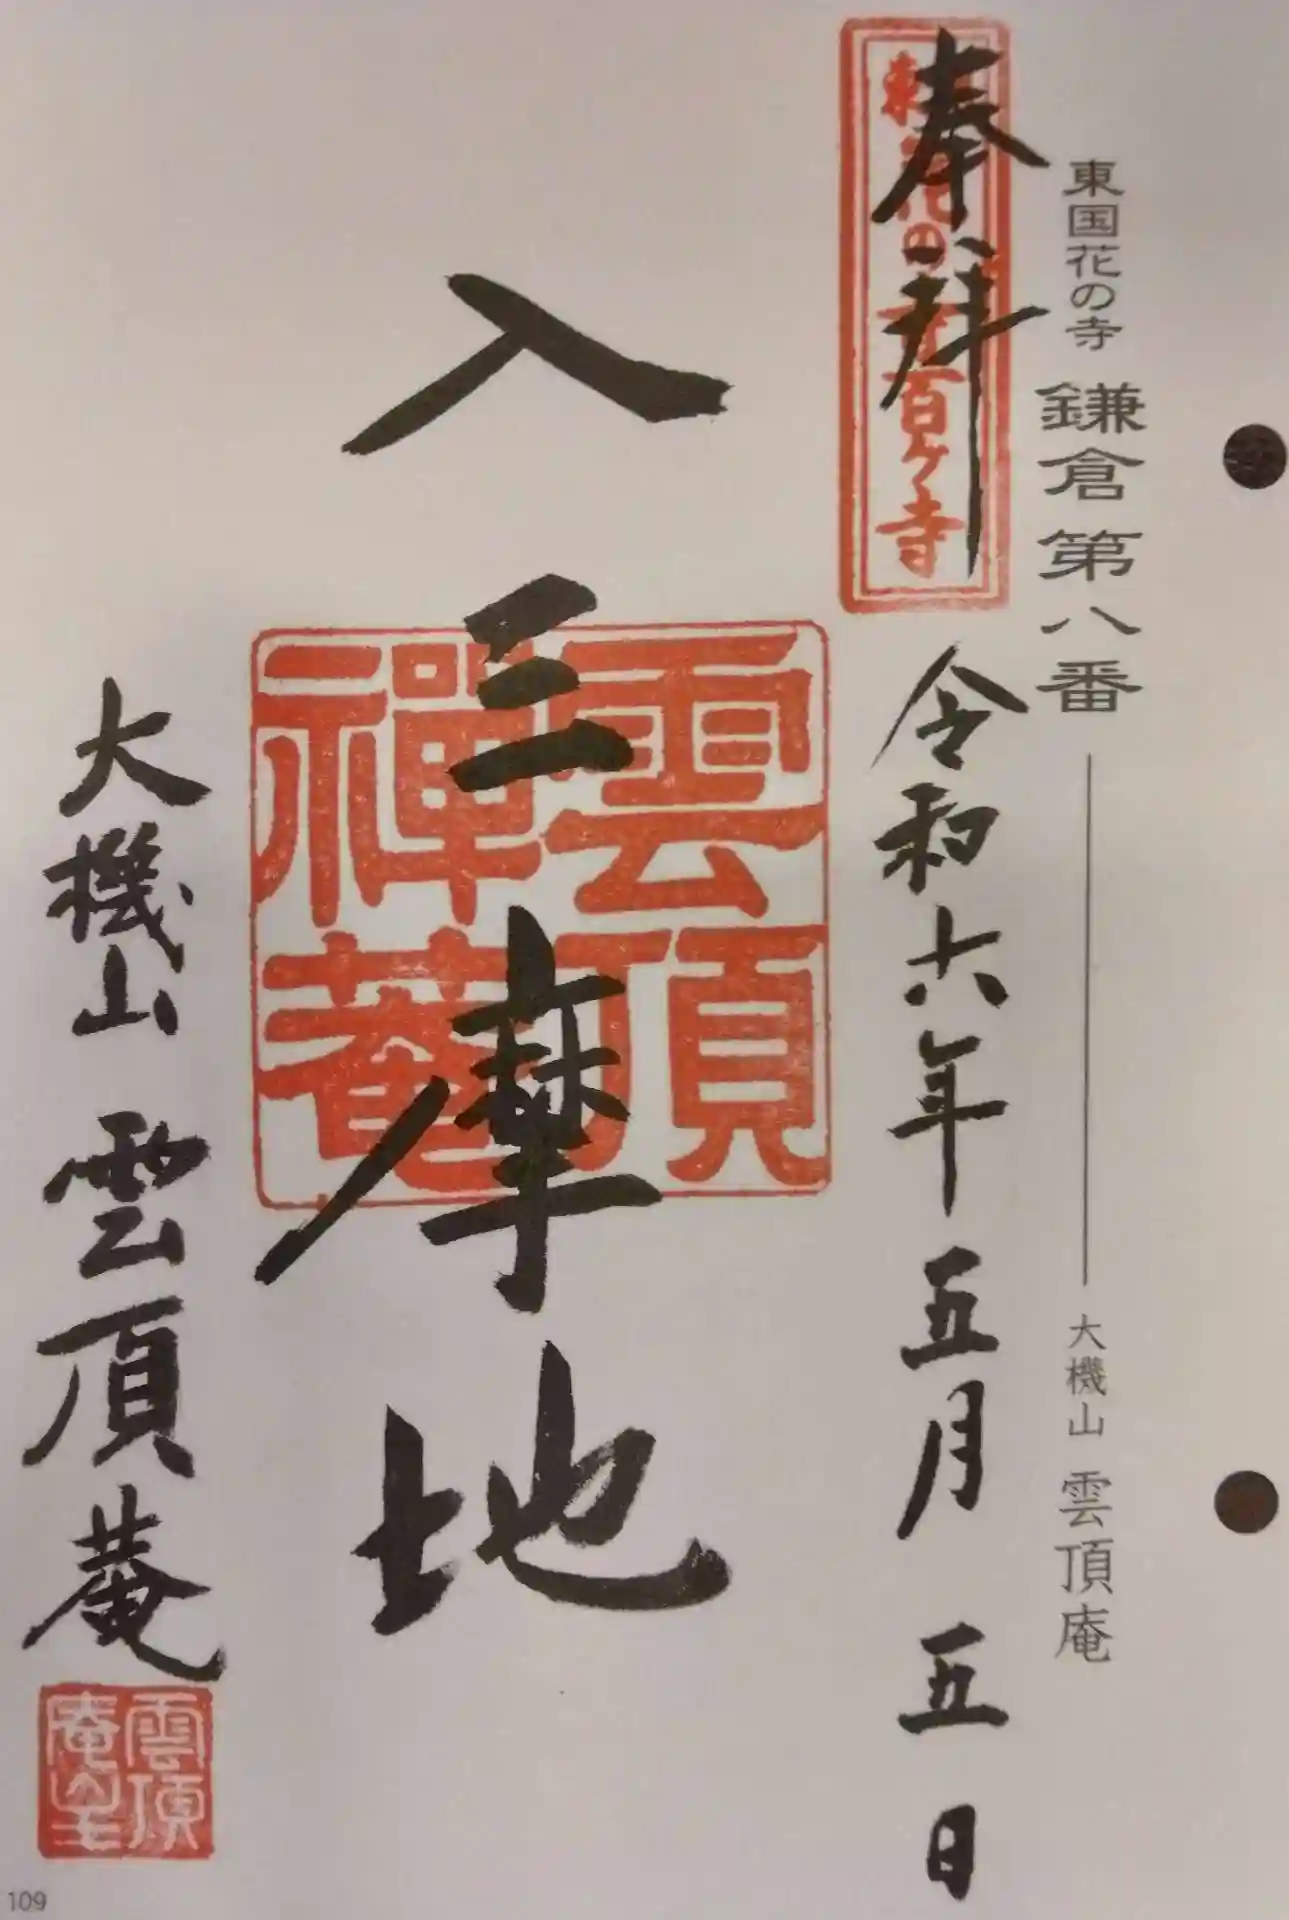 東国花の寺 鎌倉第八番 大機山 雲頂庵
奉拝 令和六年五月五日
東国花の寺百ヶ寺
入三摩地
雲頂禅菴
大機山 雲頂菴
雲頂庵
109